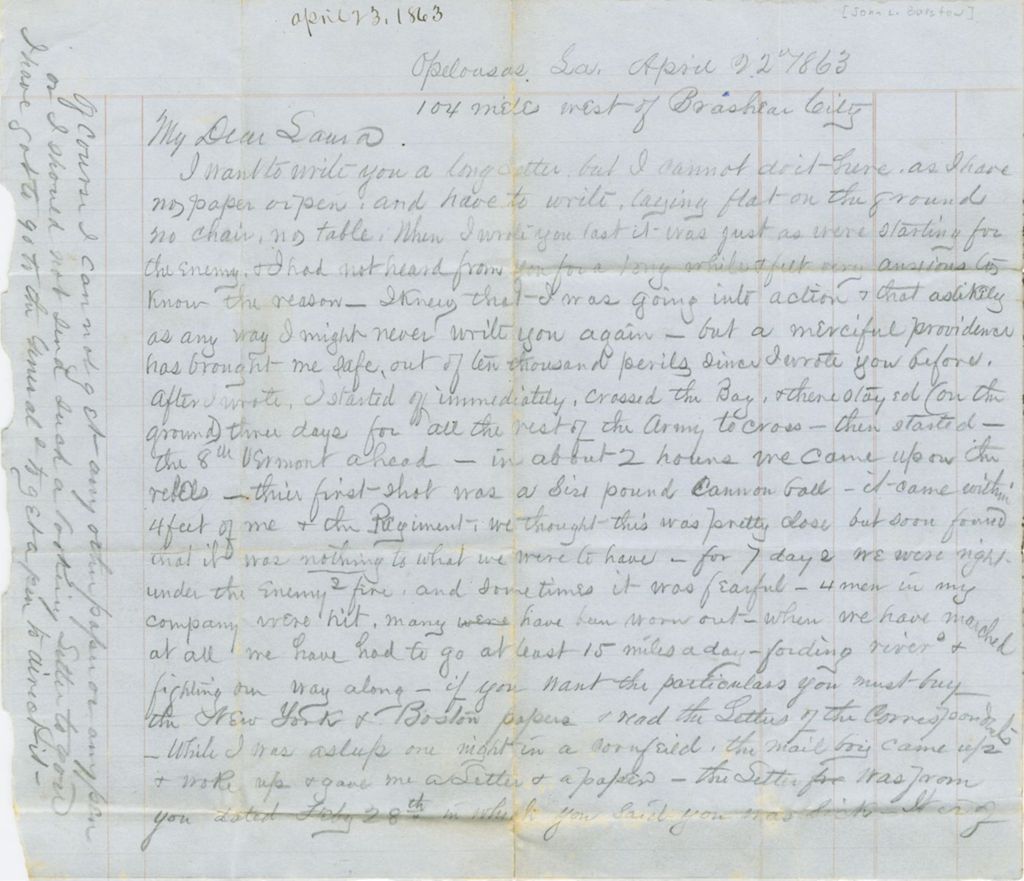 april 23, 1863
[John L. Barstow]
Opelousas, La. April 22nd 1863
104 miles west of Brashear City
My Dear Laura
I want to write you a long letter but I cannot do it here, as I have
no paper or pen, and have to write, laying flat on the ground
no chair, no table. When I wrote you last it was just as were starting for
the enemy, & I had not heard from you for a long while & felt very anxious to
know the reason — I knew that I was going into action & that as likely
as any way I might never write you again — but a merciful providence
has brought me safe, out of ten thousand perils since I wrote you before.
After I wrote, I started of immediately, crossed the Bay, & there stayed (on the
ground) three days for all the rest of the Army to cross — then started —
the 8th Vermont ahead — in about 2 hours we came upon the
rebels — thier first shot was a six pound cannon ball — it came within
4 feet of me & the Regiment, we thought this was pretty close but soon found
that it was nothing to what we were to have — for 7 days we were right
under the enemy's fire, and sometimes it was fearful — 4 men in my
company were hit, many were have been worn out — when we have marched
at all we have had to go at least 15 miles a day — fording rivers &
fighting our way along — if you want the particulars you must buy
the New York & Boston papers & read the Letters of the Correspondents
— While I was asleep one night in a cornfeild, the mail boy came up
& woke up & gave me a Letter & a paper — the Letter was from
you dated Feby 28th in which you said you was sick — It is of
Of course I can not get any other paper or any pen
or I should not send such a looking Letter to you
I have got to go to the General's to get a pen to direct it —